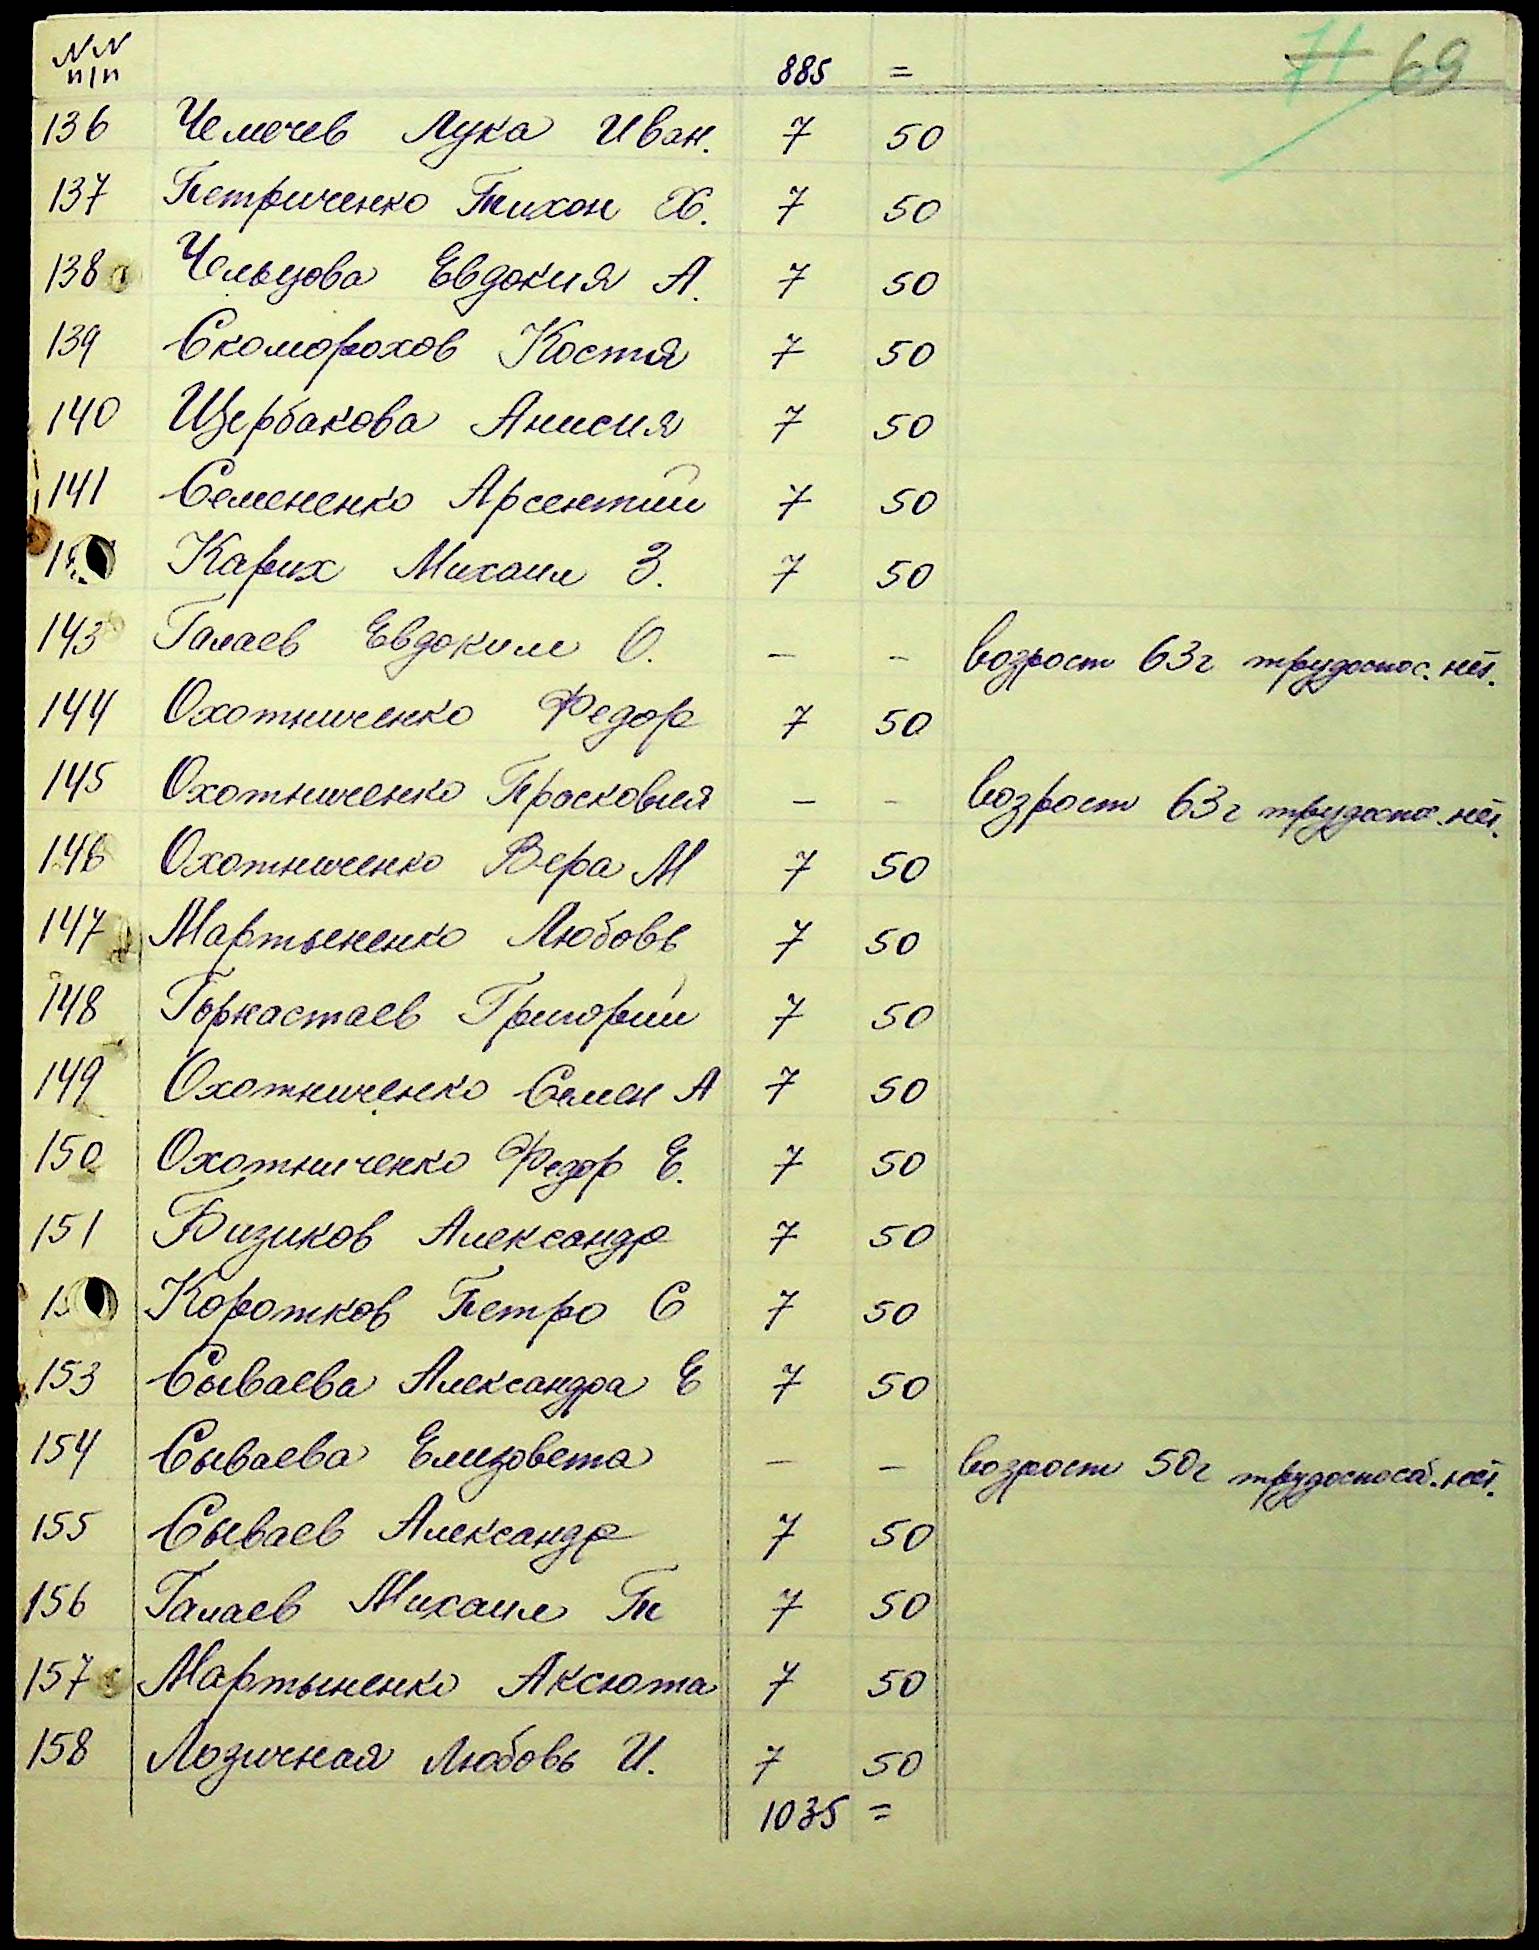 NN п/п 885 = 71 69
136 Чемочев Лука Иван. 7 50
137 Петриченко Тихон Х. 7 50
138 Чельцова Евдокия А. 7 50
139 Скоморохов Костя 7 50
140 Щербакова Анисия 7 50
141 Семененко Арсентий 7 50
Карих Михаил З. 7 50
143 Галаев Евдоким О. – – возрост 63г трудоспос. нет.
144 Охотниченко Федор 7 50
145 Охотниченко Просковия – – возрост 63г нет.
146 Охотниченко Вера М 7 50
147 Мартыненко Любовь 7 50
148 Горностаев Григорий 7 50
149 Охотниченко Семен А 7 50
150 Охотниченко Федор Е. 7 50
151 Бизиков Александр 7 50
Коротков Петро С 7 50
153 Сываева Александра Е 7 50
154 Сываева Елизовета – – возрост 50г трудоспособ. нет.
155 Сываев Александр 7 50
156 Галаев Михаил 7 50
157 Мартыненко Аксюта 7 50
158 Лозичная Любовь И. 7 50
1035 =